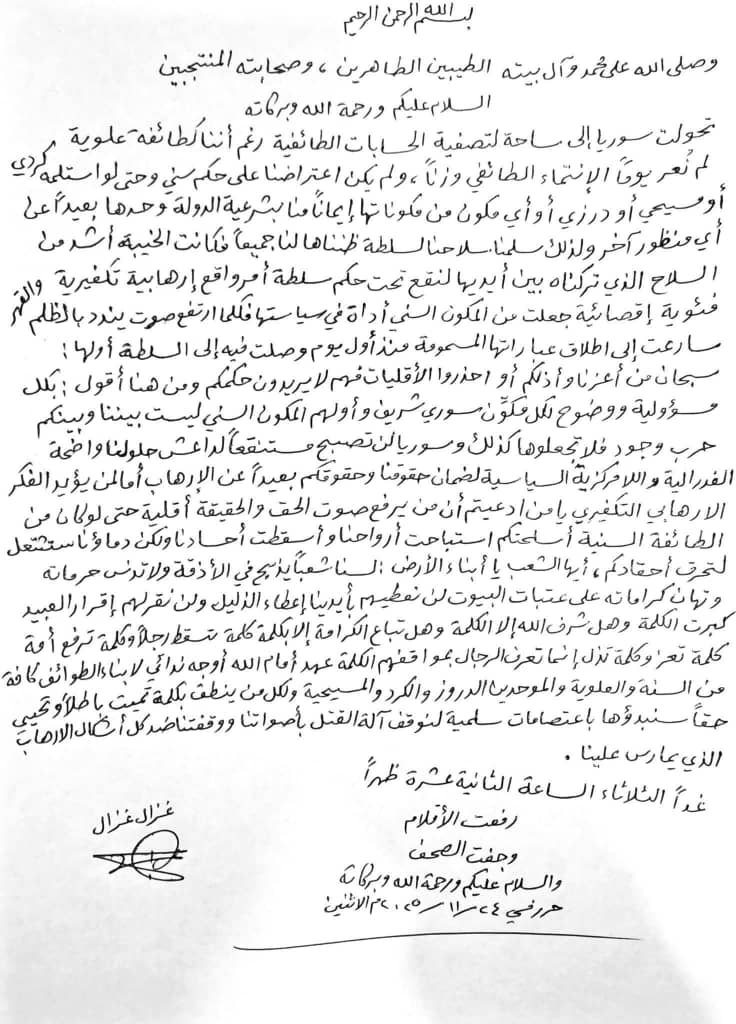 بسم الله الرحمن الرحيم
وصلى الله على محمد وآل بيته الطيبين الطاهرين ، وصحابته المنتجبين
السلام عليكم ورحمة الله وبركاته
تحولت سوريا إلى ساحة لتصفية الحسابات الطائفية رغم أننا كطائفة علوية
لم نُعر يوماً الإنتماء الطائفي وزناً ، ولم يكن اعتراضنا على حكم سني وحتى لو استلمه كردي
أو مسيحي أو درزي أو أي مكون من مكوناتها إيماناً منا بشرعية الدولة وحدها بعيداً عن
أي منظور آخر ولذلك سلمنا سلاحنا لسلطة ظنناها لنا جميعاً فكانت الخيبة أشد من
السلاح الذي تركناه بين أيديها لنقع تحت حكم سلطة أمر واقع إرهابية تكفيرية
فئوية إقصائية جعلت من المكون السني أداة في سياستها فكلما ارتفع صوت يندد بالظلم والقهر
سارعت إلى اطلاق عباراتها المسمومة منذ أول يوم وصلت فيه إلى السلطة أولها :
سبحان من أعزنا وأذلكم أو احذروا الأقليات فهم لا يريدون حكمكم ومن هنا أقول : بكل
مسؤولية ووضوح لكل مكوِّن سوري شريف وأولهم المكون السني ليست بيننا وبينكم
حرب وجود فلا تجعلوها كذلك وسوريا لن تصبح مستنقعاً لداعش حلولنا واضحة
الفدرالية واللامركزية السياسية لضمان حقوقنا وحقوقكم بعيداً عن الإرهاب أما لمن يؤيد الفكر
الارهابي التكفيري يا من ادعيتم أن من يرفع صوت الحق والحقيقة أقلية حتى لو كان من
الطائفة السنية أسلحتكم استباحت أرواحنا وأسقطت أجسادنا ولكن دماؤنا ستشتعل
لتحرق أحقادكم ، أيها الشعب يا أبناء الأرض : لسنا شعباً يذبح في الأزقة ولا تدنس حرماته
وتهان كراماته على عتبات البيوت لن نعطيهم بأيدينا إعطاء الذليل ولن نقر لهم إقرار العبيد
كبرت الكلمة وهل شرف الله إلا الكلمة وهل تباع الكرامة إلا بكلمة كلمة تسقط رجلاً وكلمة ترفع أمة
كلمة تعز وكلمة تذل إنما تعرف الرجال بمواقفهم الكلمة عهد أمام الله أوجه ندائي لابناء الطوائف كافة
من السنة والعلوية والموحدين الدروز والكرد والمسيحية ولكل من ينطق بكلمة تميت باطلاً وتحيي
حقاً سنبدؤها باعتصامات سلمية لنوقف آلة القتل بأصواتنا ووقفتنا ضد كل أشكال الارهاب
الذي يمارس علينا .
غداً الثلاثاء الساعة الثانية عشرة ظهراً
رفعت الأقلام
وجفت الصحف
والسلام عليكم ورحمة الله وبركاته
حرر في ٢٤/١١/٢٠٢٥م الاثنين
غزال غزال